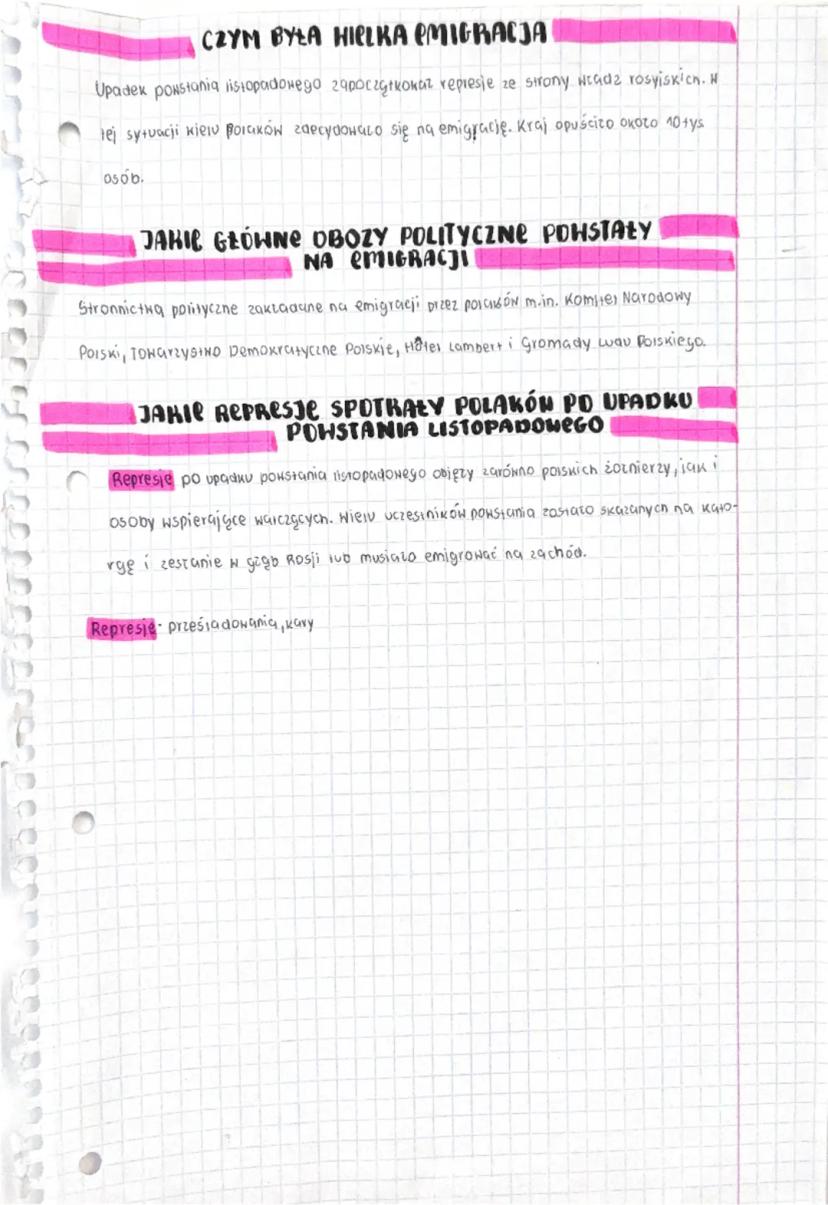 CZYM BYŁA WIELKA EMIGRACJA
Upadek powstania listopadowego zapoczątkował represje ze strony władz rosyjskich. W
tej sytuacji wielu Polaków zdecydowało się na emigrację. Kraj opuściło około 10 tys
osób.
JAKIE GŁÓWNE OBOZY POLITYCZNE POWSTAŁY
NA EMIGRACJI
Stronnictwa polityczne zakładane na emigracji przez polaków m.in. Komitet Narodowy
Polski, Towarzystwo Demokratyczne Polskie, Hôtel Lambert i Gromady Ludu Polskiego.
JAKIE REPRESJE SPOTKAŁY POLAKÓW PO UPADKU
POWSTANIA LISTOPADOWEGO
Represje po upadku powstania listopadowego objęły zarówno polskich żołnierzy, jak i
osoby wspierające walczących. Wielu uczestników powstania zostało skazanych na kato-
rgę i zesłanie w głąb Rosji lub musiało emigrować na zachód.
Represje - prześladowania, kary